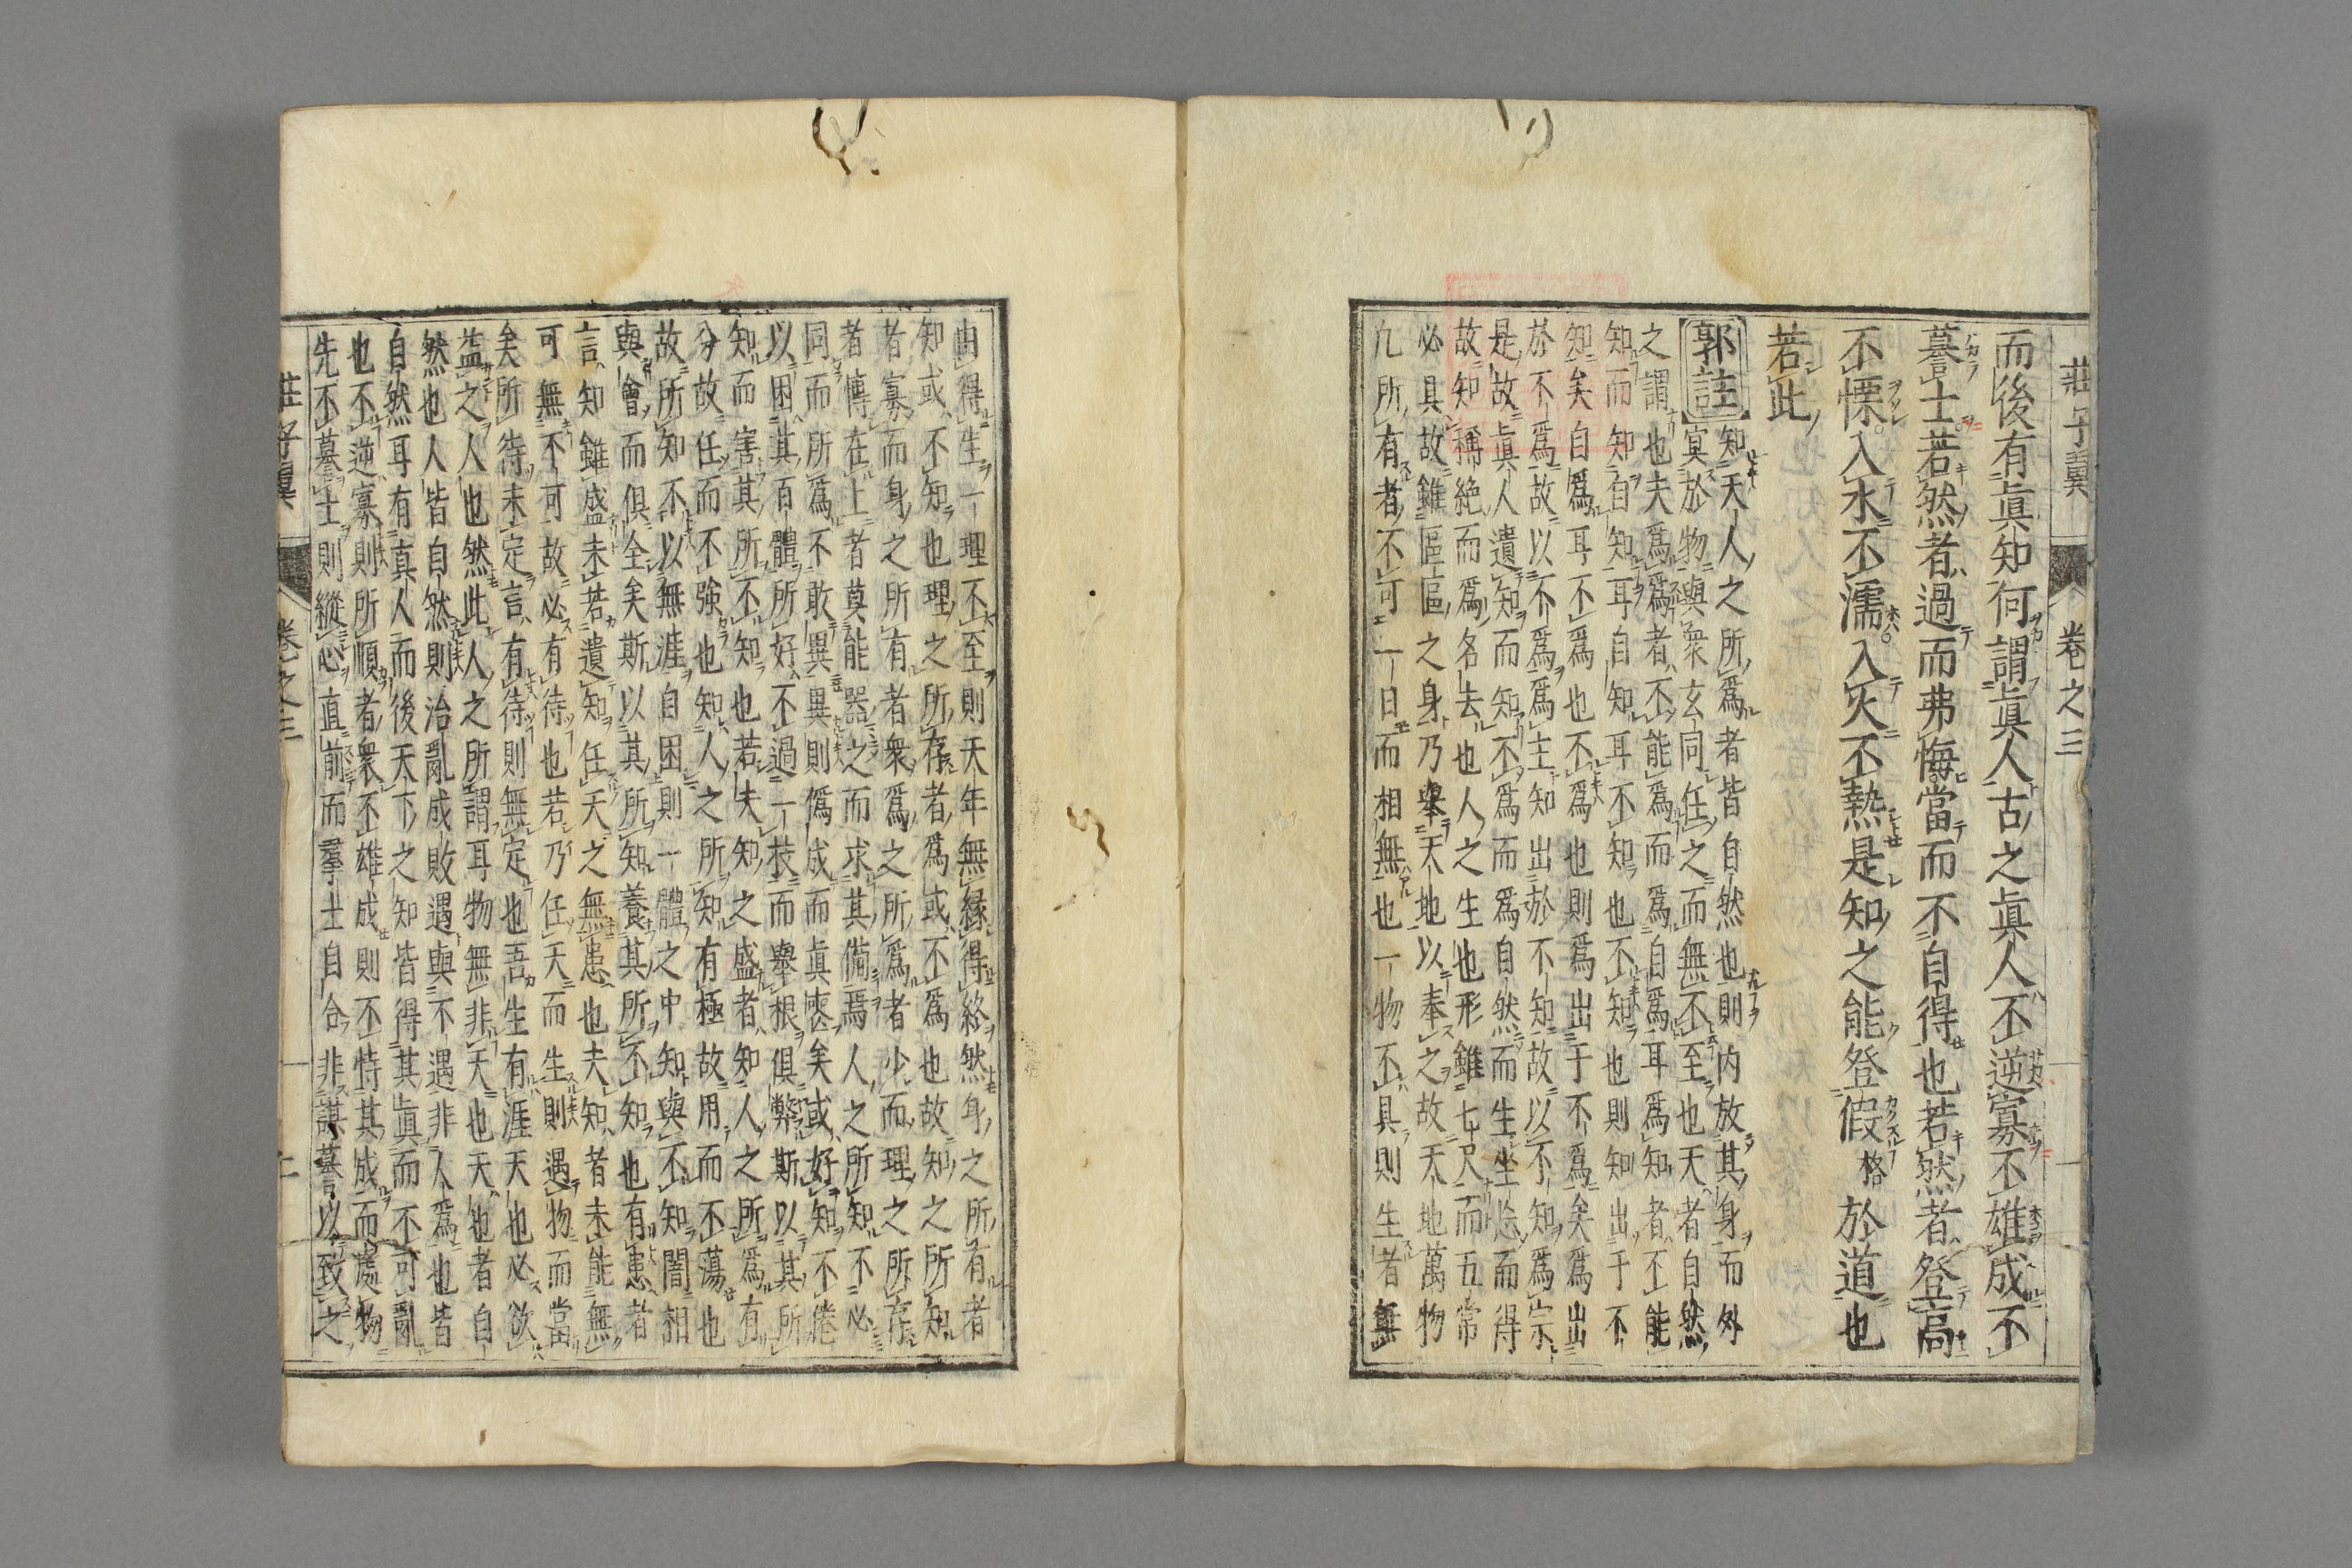 莊子翼　卷之三
而後有眞知何謂眞人古之眞人不逆寡不雄成不
謩士若然者過而弗悔當而不自得也若然者登高
不慄入水不濡入火不熱是知之能登假格於道也
若此
郭註
知天人之所爲者皆自然也則内放其身而外
冥於物與衆玄同任之而無不至也天者自然
之謂也夫爲爲者不能爲而爲自爲耳爲知者不能
知而知自知耳自知耳不知也不知也則知出于不
知矣自爲耳不爲也不爲也則爲出于不爲矣爲出
於不爲故以不爲爲主知出於不知故以不知爲宗
是故眞人遺知而知不爲而爲自然而生坐忘而得
故知稱絶而爲名去也人之生也形雖七尺而五常
必具故雖區區之身乃擧天地以奉之故天地萬物
凡所有者不可一日而相無也一物不具則生者無
由得生一理不至則天年無緣得終然身之所有者
知或不知也理之所存者爲或不爲也故知之所知
者寡而身之所有者衆爲之所爲者少而理之所存
者博在上者莫能器之而求其備焉人之所知不必
同而所爲不敢異異則僞成而眞喪矣或好知不倦
以困其百體所好不過一枝而擧根俱弊斯以其所
知而害其所不知也若夫知之盛者知人之所爲有
分故任而不强也知人之所知有極故用而不蕩也
故所知不以無涯自困則一體之中知與不知闇相
與會而俱全矣斯以其所知養其所不知也有患者
言知雖盛未若遺知任天之無患也夫知者未能無
可無不可故必有待也若乃任天而生則遇物而當
矣所待未定言有待則無定也吾生有涯天也必欲
益之人也然此人之所謂耳物無非天也天也者自
然也人皆自然則治亂成敗遇與不遇非人爲也皆
自然耳有真人而後天下之知皆得其眞而不可亂
也不逆寡則所順者衆不雄成則不恃其成而處物
先不謩士則縱心直前而羣士自合非謀謩以致之
莊子翼　卷之三　二